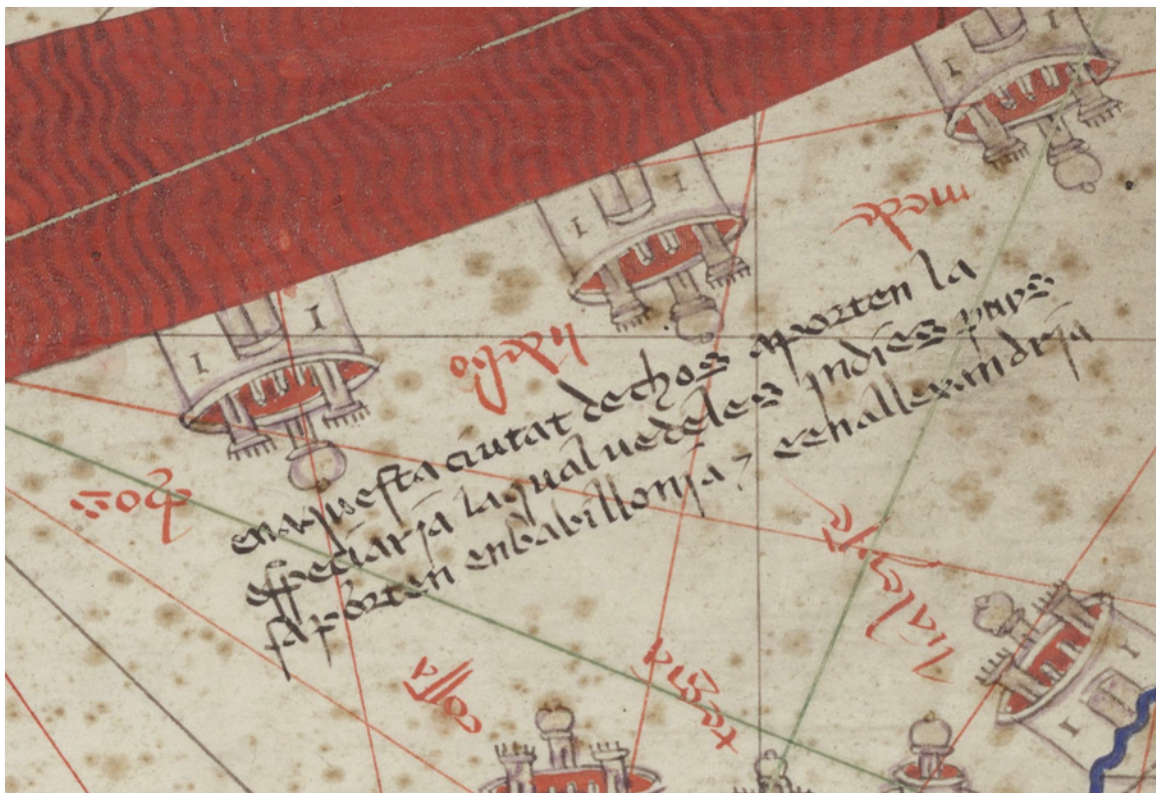 mede
lidebo
chos
enaquesta ciutat dechos aporten la
especiarja laqual uedeles jndies puys
saporten enbabillonja / e enallexandrja
cossa